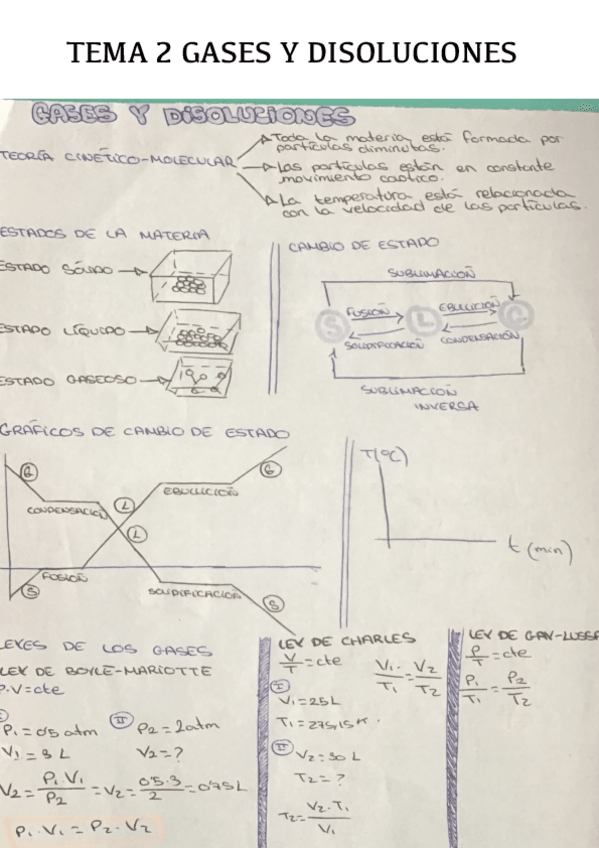 TEMA 2 GASES Y DISOLUCIONES
GASES Y DISOLUCIONES
TEORÍA CINÉTICO-MOLECULAR
Toda la materia está formada por
partículas diminutas.
Las partículas están en constante
movimiento caotico.
La temperatura está relacionada
con la velocidad de las partículas.
ESTADOS DE LA MATERIA
ESTADO SÓLIDO
ESTADO LÍQUIDO
ESTADO GASEOSO
CAMBIO DE ESTADO
SUBLIMACIÓN
S FUSIÓN L EBULLICIÓN G
SOLIDIFICACIÓN CONDENSACIÓN
SUBLIMACIÓN
INVERSA
GRÁFICOS DE CAMBIO DE ESTADO
G
CONDENSACIÓN
L
EBULLICIÓN
G
L
FUSIÓN
S
SOLIDIFICACION
S
T(ºC)
t (min)
LEYES DE LOS GASES
LEY DE BOYLE-MARIOTTE
P·V=cte
I
P1=0'5 atm
V1=3 L
II
P2=2atm
V2=?
V2=P1·V1/P2=V2=0'5·3/2=0'75L
P1·V1=P2·V2
LEY DE CHARLES
V/T=cte
V1/T1=V2/T2
I
V1=25L
T1=275,15K.
II
V2=30 L
T2=?
T2=V2·T1/V1
LEY DE GAY-LUSSA
P/T=cte
P1/T1=P2/T2